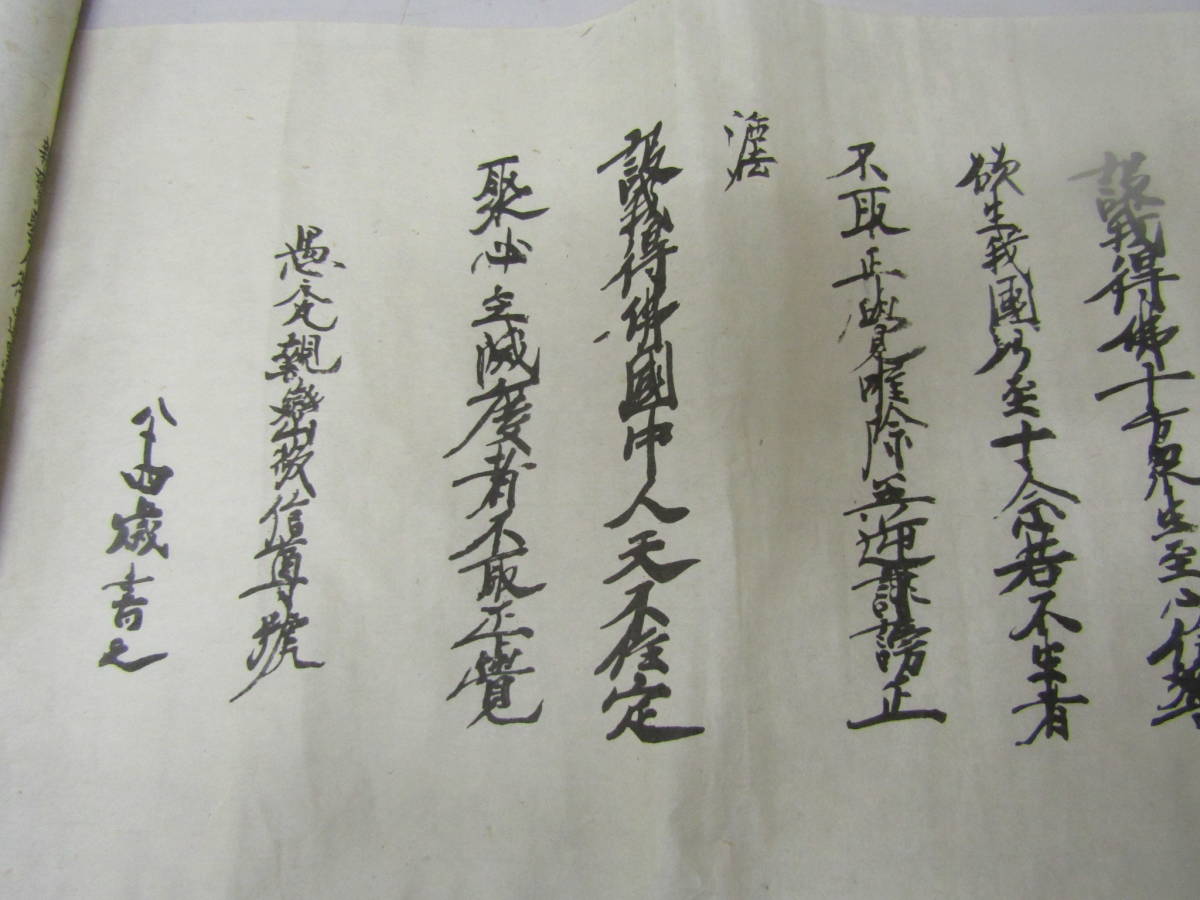 設我得佛十方衆生至心信樂
欲生我國乃至十念若不生者
不取正覺唯除五逆誹謗正
法
設我得佛國中人天不住定
聚必至滅度者不取正覺
愚禿親鸞敬信尊號
八十四歳書之